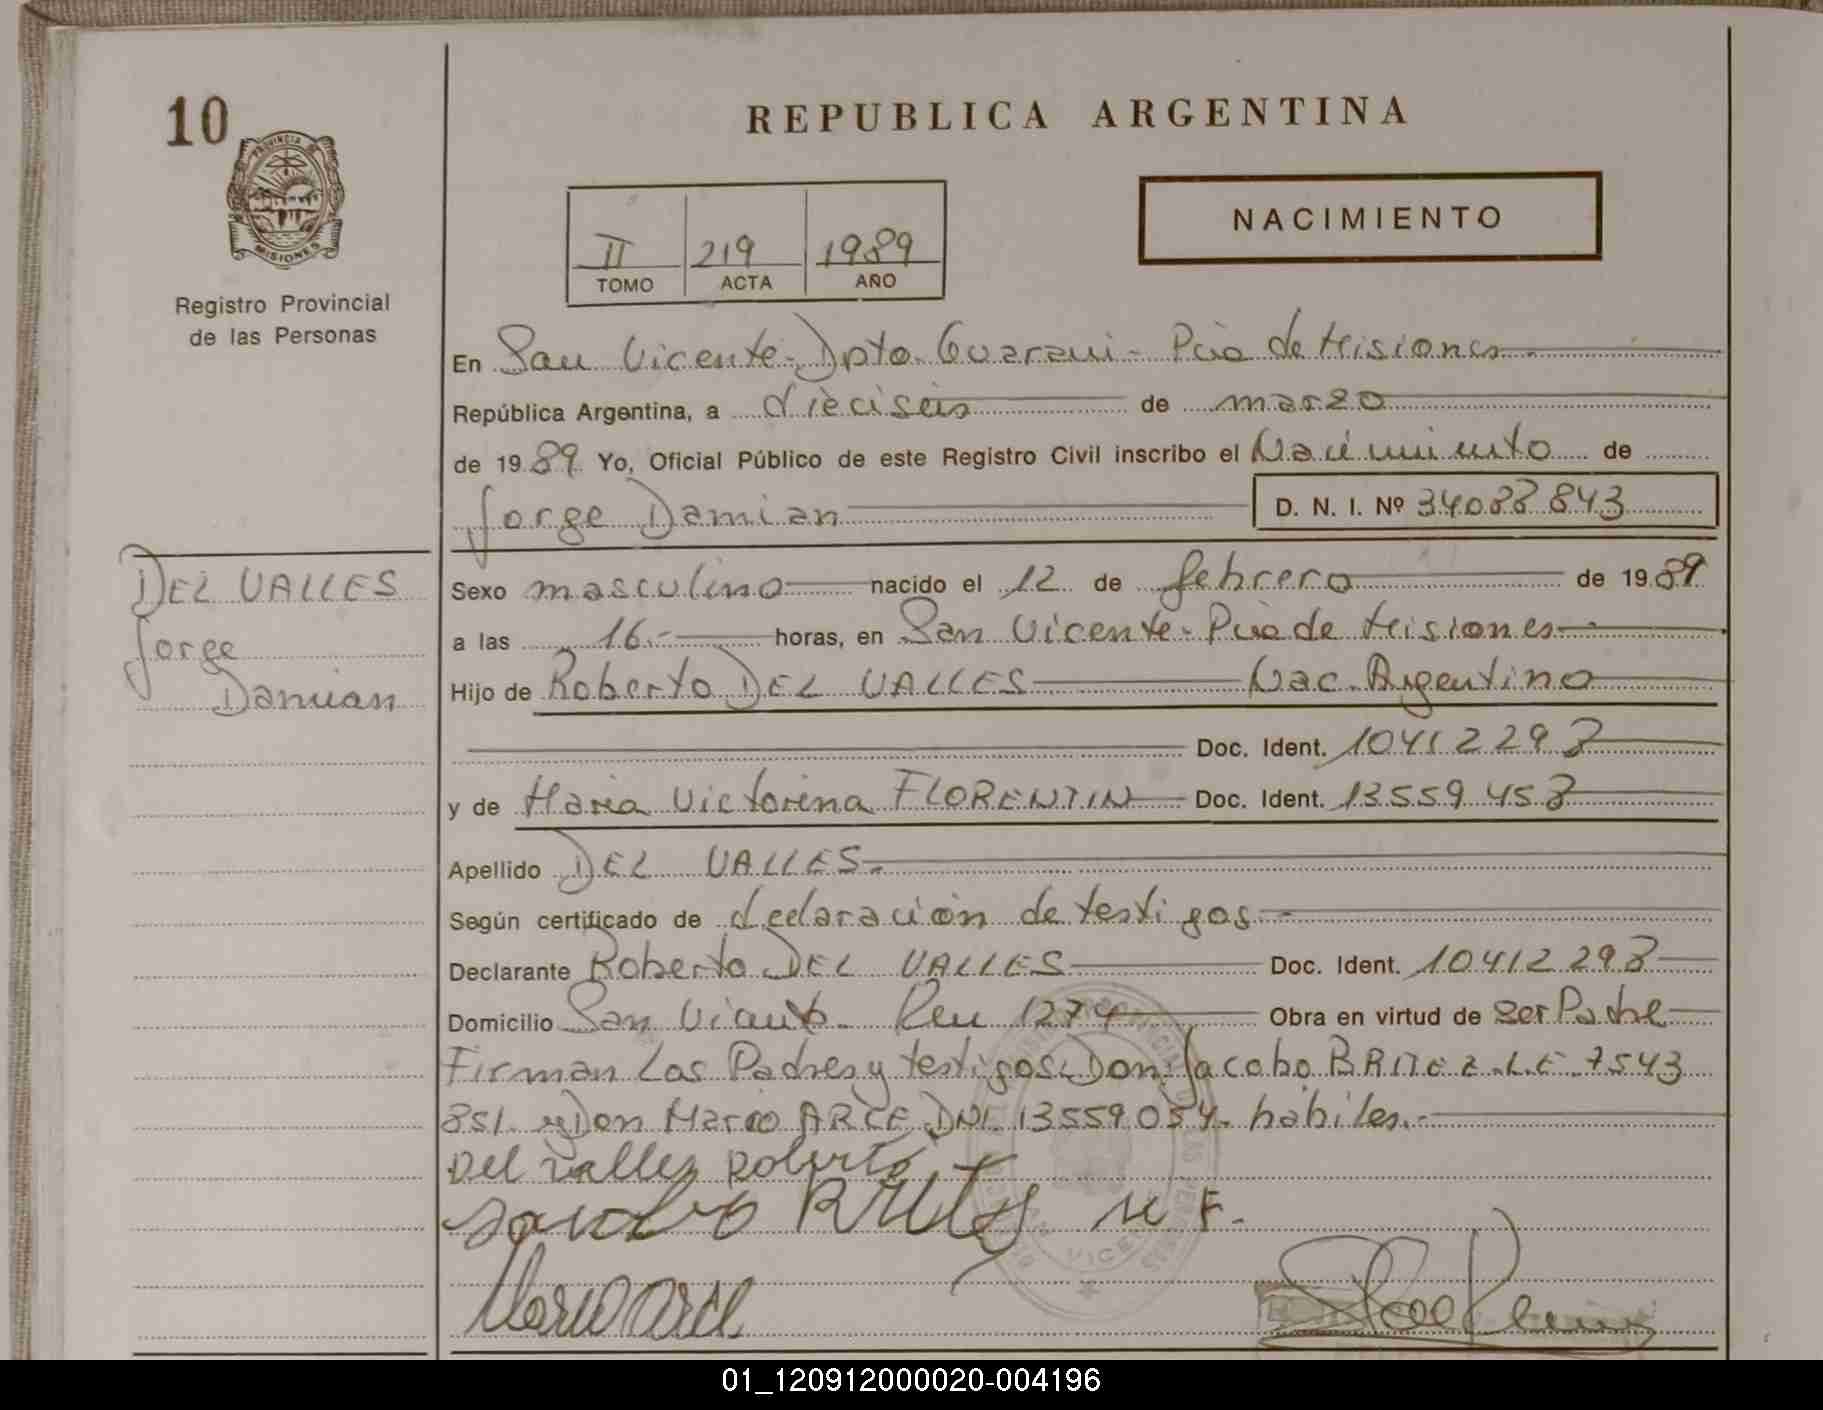 10
REPUBLICA ARGENTINA
PROVINCIA DE
MISIONES
Registro Provincial
de las Personas
II 219 1989
TOMO ACTA AÑO
NACIMIENTO
En San Vicente - Dpto. Guarani - Pcia de Misiones
República Argentina, a dieciseis de marzo
de 1989 Yo, Oficial Público de este Registro Civil inscribo el Nacimiento de
Jorge Damian D. N. I. Nº 34088843
DEL VALLES
Jorge
Damian
Sexo masculino nacido el 12 de febrero de 1989
a las 16.- horas, en San Vicente - Pcia de Misiones
Hijo de Roberto DEL VALLES Nac. Argentino
Doc. Ident. 10412293
y de Maria Victorina FLORENTIN Doc. Ident. 13559453
Apellido DEL VALLES.
Según certificado de declaración de testigos.-
Declarante Roberto DEL VALLES Doc. Ident. 10412293
Domicilio San Vicente 1279 Obra en virtud de ser Padre
Firman Los Padres y testigos Don Jacobo BRITEZ L.E 7543
851 y Don Mario ARCE DNI. 13559054. habiles.-
Del valles Roberto
Jacobo Britez M F.
Mario Arce
01_120912000020-004196